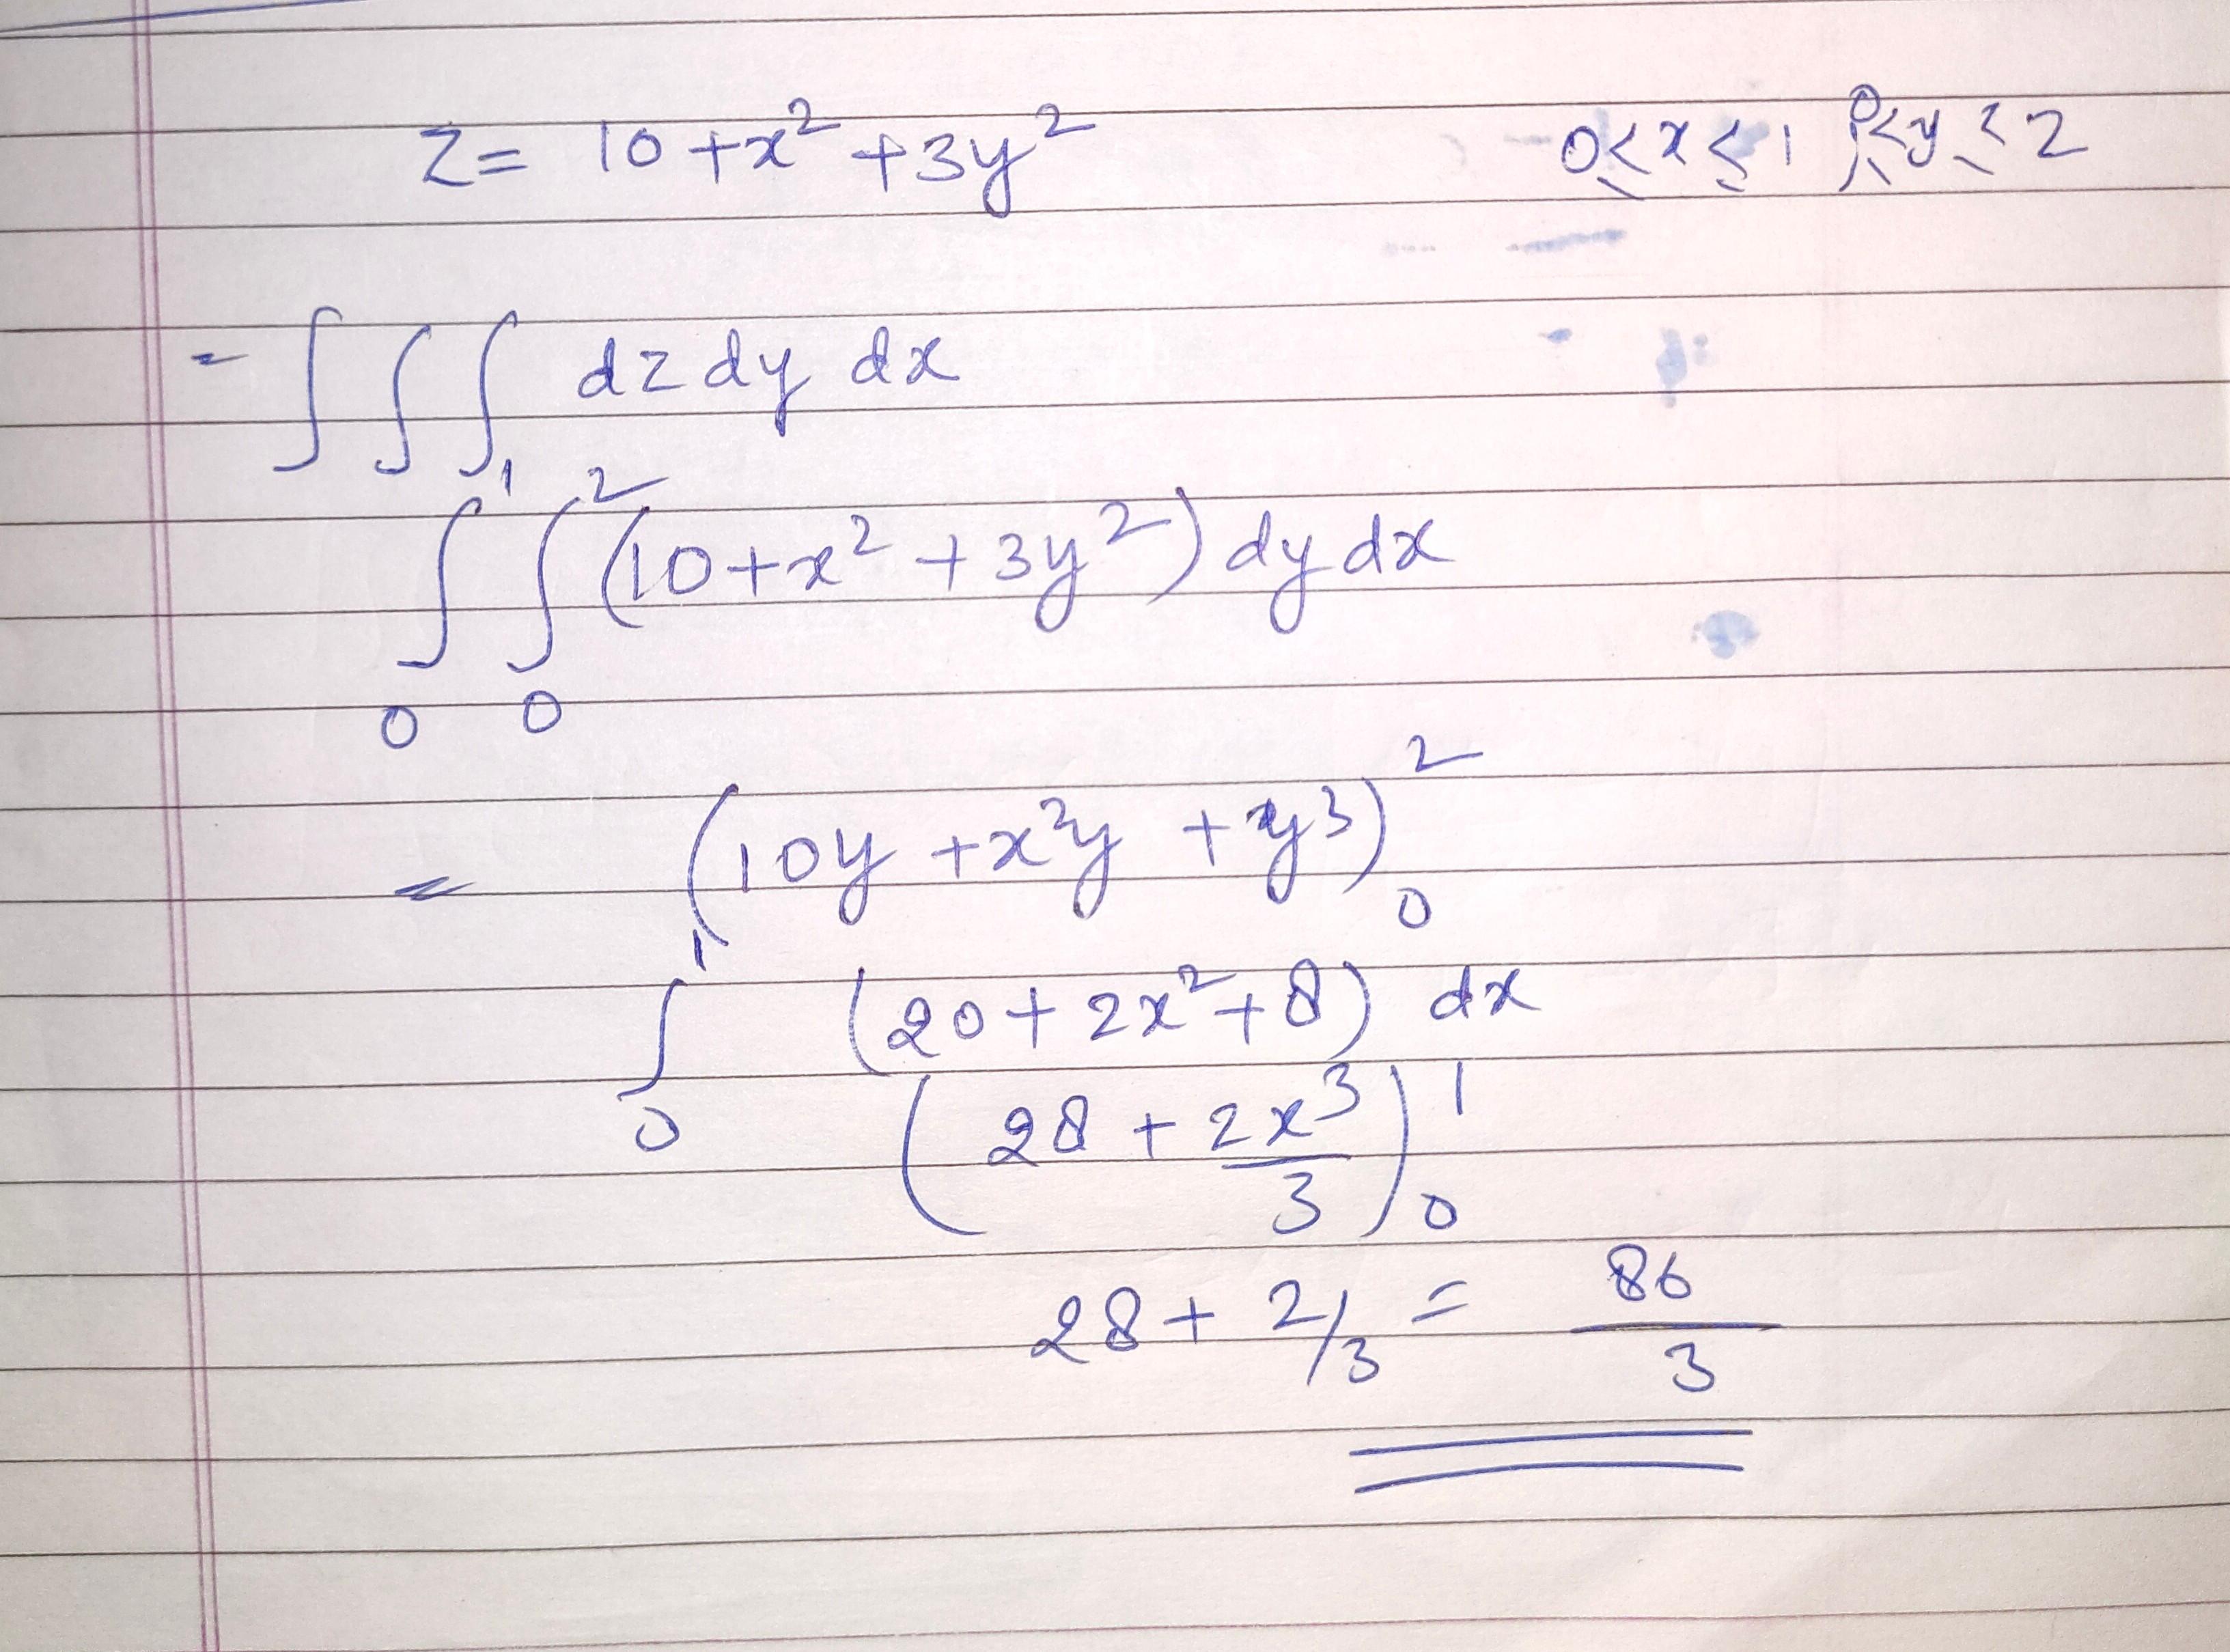 z = 10 + x² + 3y² 0 ≤ x ≤ 1 0 ≤ y ≤ 2
= ∫ ∫ ∫ dz dy dx
∫₀¹ ∫₀² (10 + x² + 3y²) dy dx
= (10y + x²y + y³)₀²
∫₀¹ (20 + 2x² + 8) dx
(28 + 2x³/3)₀¹
28 + 2/3 = 86/3